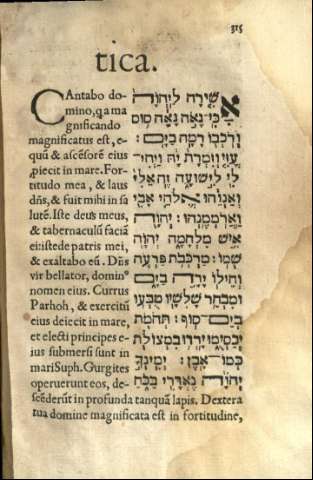 315
tica.
CAntabo do-
mino, q̃a ma
gnificando
magnificatus est, e-
quũ & ascẽsorẽ eius
,piecit in mare. For-
titudo mea, & laus
dñs, & fuit mihi in sa
lutẽ. Iste deus meus,
& tabernaculũ faciã
ei: iste de⁹ patris mei,
& exaltabo eũ. Dñs
vir bellator, domin⁹
nomen eius. Currus
Parhoh, & exercitũ
eius deiecit in mare,
et electi principes e-
ius submersi sunt in
mari Suph. Gurgites
operuerunt eos, de-
scẽderũt in profunda tanquã lapis. Dextera
tua domine magnificata est in fortitudine,
אָשִׁירָה לַיהֹוָה
כִּי־גָאֹה גָּאָה סוּס
וְרֹכְבוֹ רָמָה בַיָּם:
עָזִּי וְזִמְרָת יָהּ וַיְהִי־
לִי לִישׁוּעָה זֶה אֵלִי
וְאַנְוֵהוּ אֱלֹהֵי אָבִי
וַאֲרֹמֲמֶנְהוּ: יְהוָֹה
אִישׁ מִלְחָמָה יְהוָֹה
שְׁמוֹ: מַרְכְּבֹת פַּרְעֹה
וְחֵילוֹ יָרָה בַיָּם
וּמִבְחַר שָׁלִשָׁיו טֻבְּעוּ
בְיַם־סוּף: תְּהֹמֹת
יְכַסְיֻמוּ יָרְדוּ בִמְצוֹלֹת
כְּמוֹ־אָבֶן: יְמִינְךָ
יְהוָֹה נֶאְדָּרִי בַּכֹּחַ